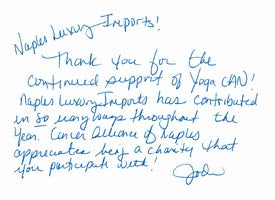 Naples Luxury Imports!
Thank you for the
continued support of Yoga CAN!
Naples Luxury Imports has contributed
in so many ways throughout the
year. Cancer Alliance of Naples
appreciates being a charity that
you participate with!
Jodi